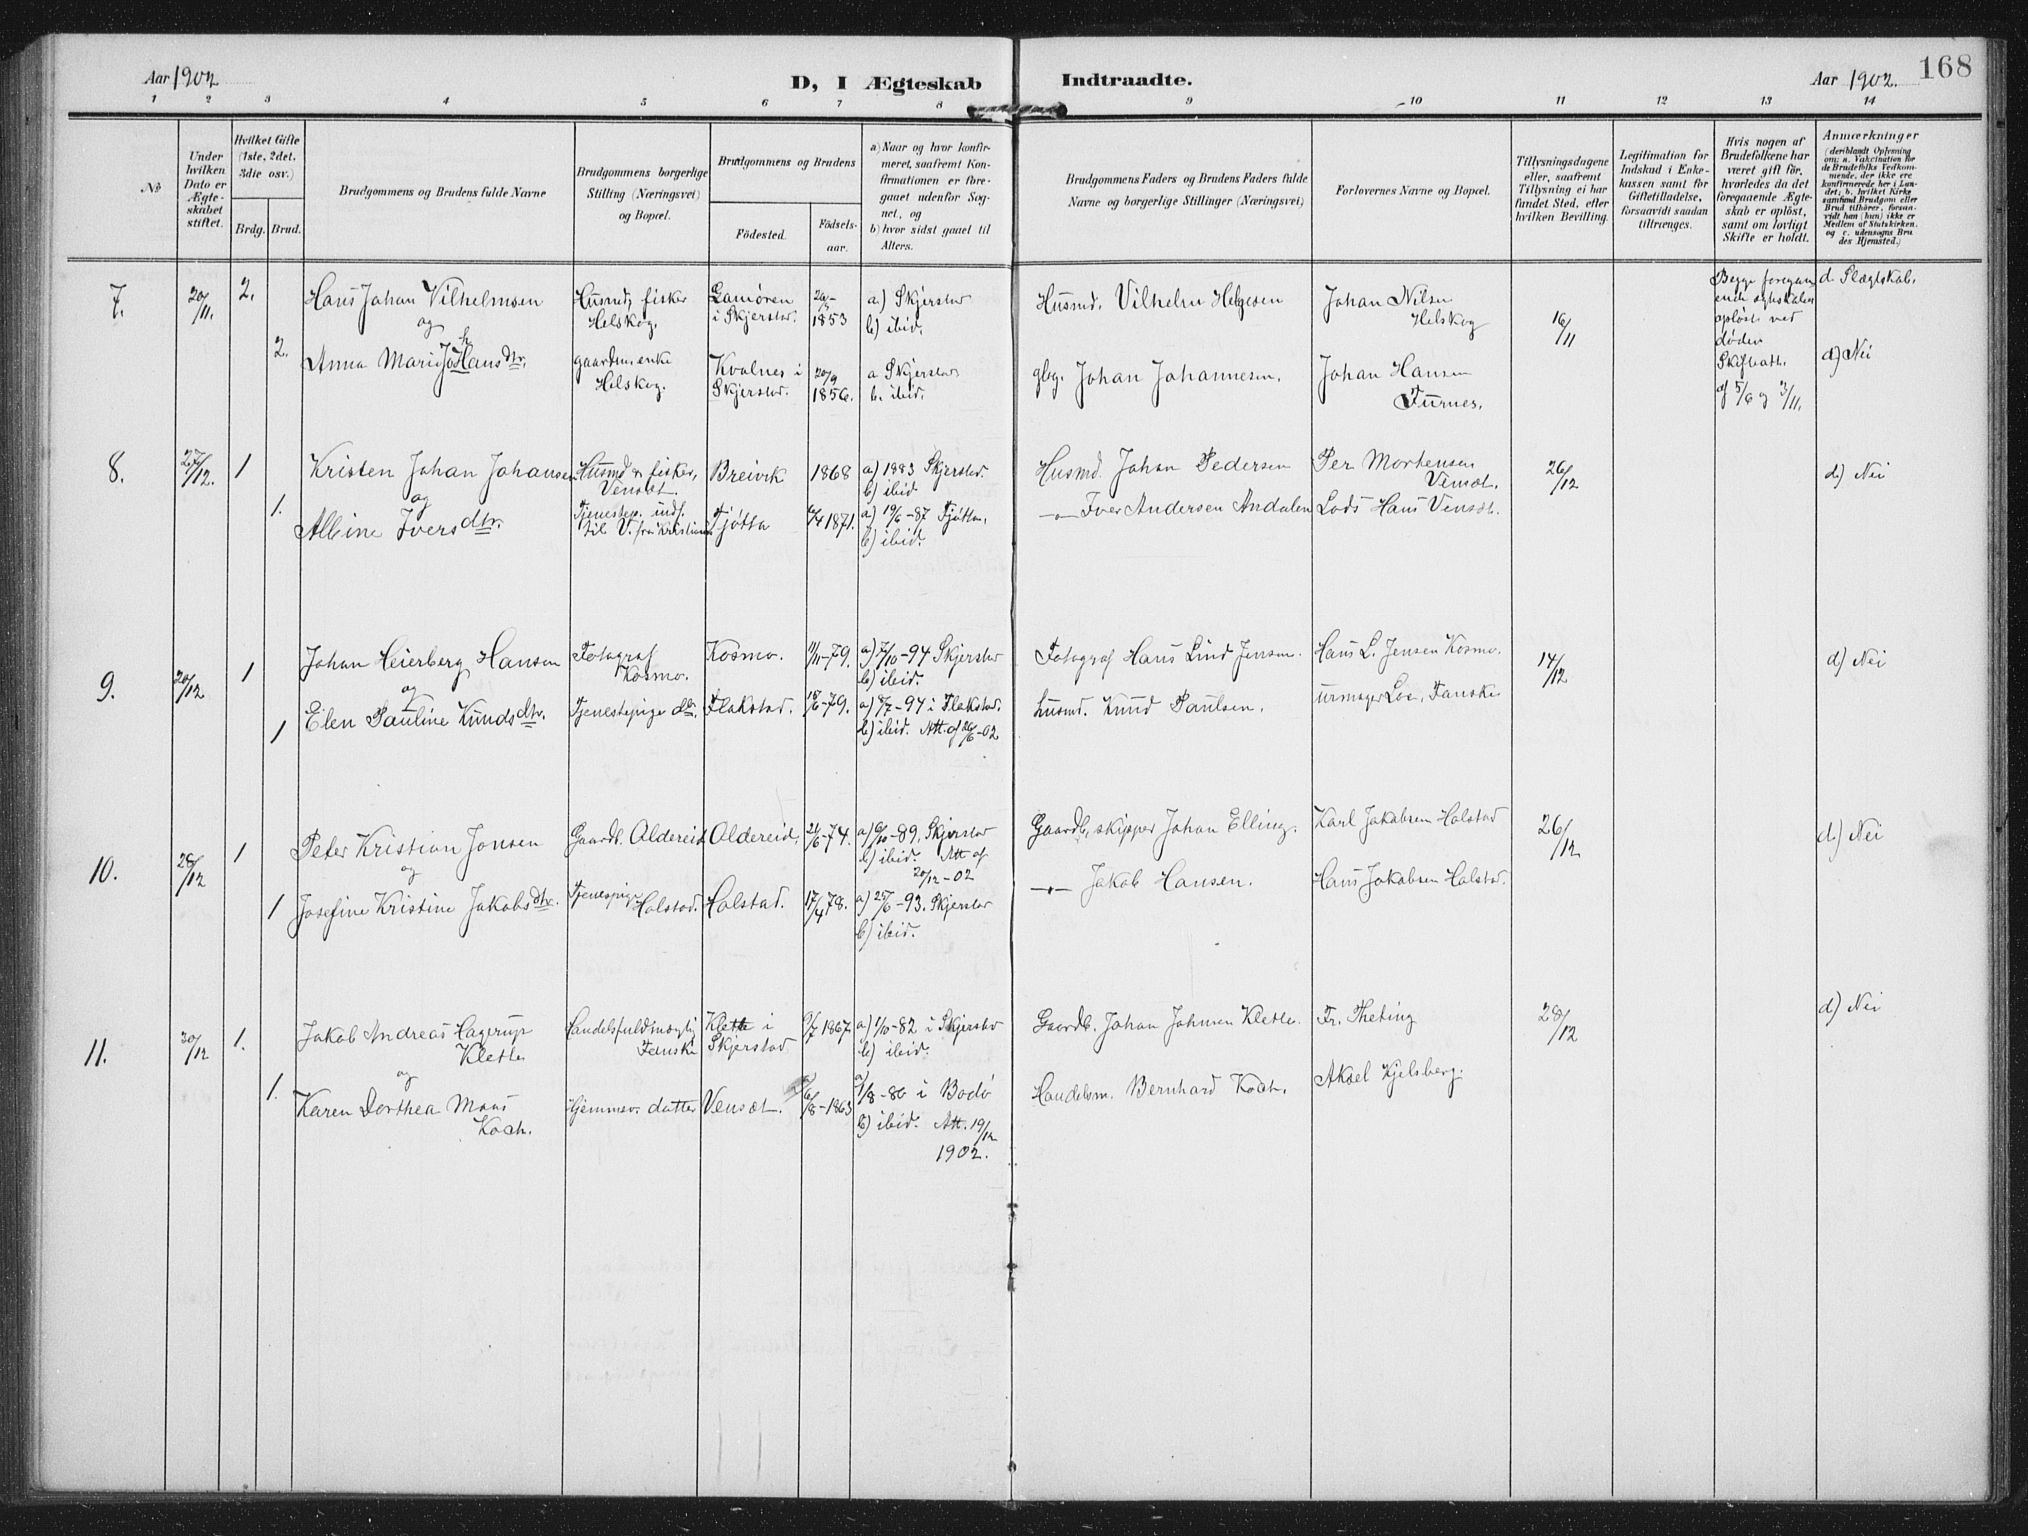 Aar 1902
D, I Ægteskab Indtraadte.
Aar 1902.
168
1 2 3 4 5 6 7 8 9 10 11 12 13 14
No
Under hvilken Dato er Ægteskabet stiftet.
Hvilket Gifte (1ste, 2det, 3die osv.)
Brdg. Brud.
Brudgommens og Brudens fulde Navne
Brudgommens borgerlige Stilling (Næringsvei) og Bopæl.
Brudgommens og Brudens
Fødested.
Fødselsaar.
a) Naar og hvor konfirmeret, saafremt Konfirmationen er foregaaet udenfor Sognet, og
b) hvor sidst gaaet til Alters.
Brudgommens Faders og Brudens Faders fulde Navne og borgerlige Stillinger (Næringsvei)
Forlovernes Navne og Bopæl.
Tillysningsdagene eller, saafremt Tillysning ei har fundet Sted, efter hvilken Bevilling.
Legitimation for Indskud i Enkekassen samt for Giftetilladelse, forsaavidt saadan tiltrænges.
Hvis nogen af Brudefolkene har været gift før, hvorledes da det foregaaende Ægteskab er opløst, samt om lovligt Skifte er holdt.
Anmærkninger
(deriblandt Oplysning om: a. Vakcination for de Brudefolks Vedkommende, der ikke ere konfirmerede her i Landet; b. hvilket Kirkesamfund Brudgom eller Brud tilhører, forsaavidt han (hun) ikke er Medlem af Statskirken. og c. udensogns Brudes Hjemsted.)
7. 20/11. 2. Hans Johan Vilhelmsen Husmd, fisker Helskog. i Skjerstad. 1853 a.) Skjerstad b) ibid. Husmd. Vilhelm Helgesen Johan Nilsen Helskog 16/11 Begge foregaaende ægteskaber opløst ved døden d. Slægtskab.
og
2. Anna Marie Joh Hansdtr. gaardm. enke Helskog. Kvalnes i Skjerstad. 20/9 1856. a Skjerstad b. ibid. gbg. Johan Johannesen. Johan Hansen Furnes. Skifteatt. af 5/6 og 3/11. d) Nei
8. 27/12. 1 Kristen Johan Johansen Husmd & fisker, Vensæt. Breivik 1868 a) 1883 Skjerstad. b) ibid Husmd. Johan Pedersen Per Mortensen Vensæt. 26/12 d) Nei
og
1. Albine Iversdtr. Tjenestep. indf. til V. fra Kristians. Tjøtta 1871. a) 19/6-87 Tjøtta. b) ibid. —"— Iver Andersen Andalen Lods Hans Vensæt.
9. 20/12 1 Johan Heierberg Hansen Fotograf Kosmo. Kosmo. 11/11-79. a) 7/10-94 Skjerstad b) ibid. Fotograf Hans Lind Jensen. Hans L. Jensen Kosmo. 14/12 d) Nei
og
1 Elen Pauline Knudsdtr. Tjenestepige do. Flakstad. 18/6-79. a) 8/7-94 i Flakstad. b) ibid. Att. af 26/6-02 husmd. Knud Paulsen. urmager Loe, Fauske
10. 28/12 1 Peter Kristian Jonsen Gaardb. Aldereid Aldereid. 21/6-74. a) 6/10-89. Skjerstad b) ibid. Att af 20/12-02 Gaardb, skipper Johan Elling. Karl Jakobsen Halstad 26/12 d) Nei
og
1 Josefine Kristine Jakobsdtr. Tjenestpige Halstad. Halstad. 17/4 78. a) 25/6-93. Skjerstad b) ibid. —"— Jakob Hansen. Hans Jakobsen Halstad.
11. 30/12 1. Jakob Andreas Hagerup Klette Handelsfuldmægtig Fauske Klette i Skjerstad 9/7 1867 a) 1/10-82 i Skjerstad b) ibid. Gaardb. Johan Johnsen Klette. Fr. Theting 28/12 d) Nei
og
1. Karen Dorthea Maas Koch. Hjemmev. datter Vensæt. 6/8-1863 a) 1/8-80 i Bodø b) ibid. Att. 19/12 1902. Handelsm. Bernhard Koch. Aksel Kjelsberg.